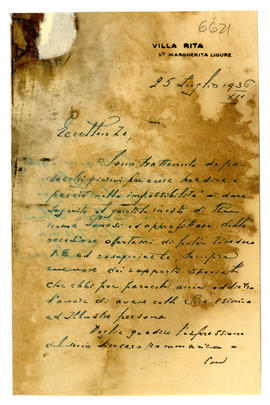 6621
VILLA RITA
Sª MARGHERITA LIGURE
25 Luglio 1936
Eccellenza,
Sono trattenuto da pa-
recchi giorni per cure mediche e
perciò nella impossibilità di dare
seguito al gentile invito di
ed approfittare della
occasione di poter
V.E. ed ossequiarla, sempre
memore dei rapporti speciali
che ebbi per parecchi anni
l'onore di avere colla Sua esimia
ed illustre persona
Voglia gradire l'espressione
del mio sincero rammarico e
con